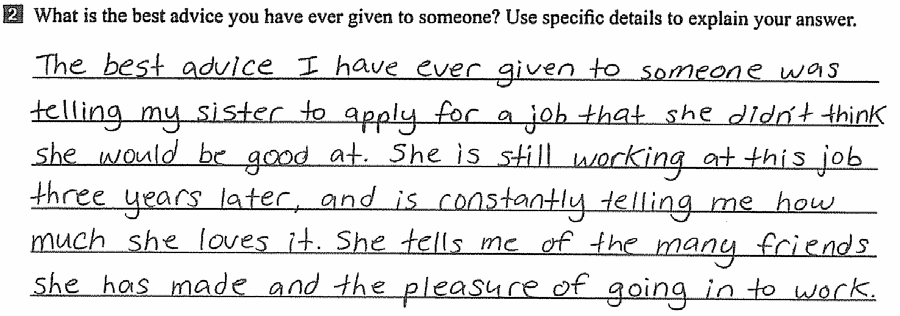 2 What is the best advice you have ever given to someone? Use specific details to explain your answer.
The best advice I have ever given to someone was
telling my sister to apply for a job that she didn't think
she would be good at. She is still working at this job
three years later, and is constantly telling me how
much she loves it. She tells me of the many friends
she has made and the pleasure of going in to work.